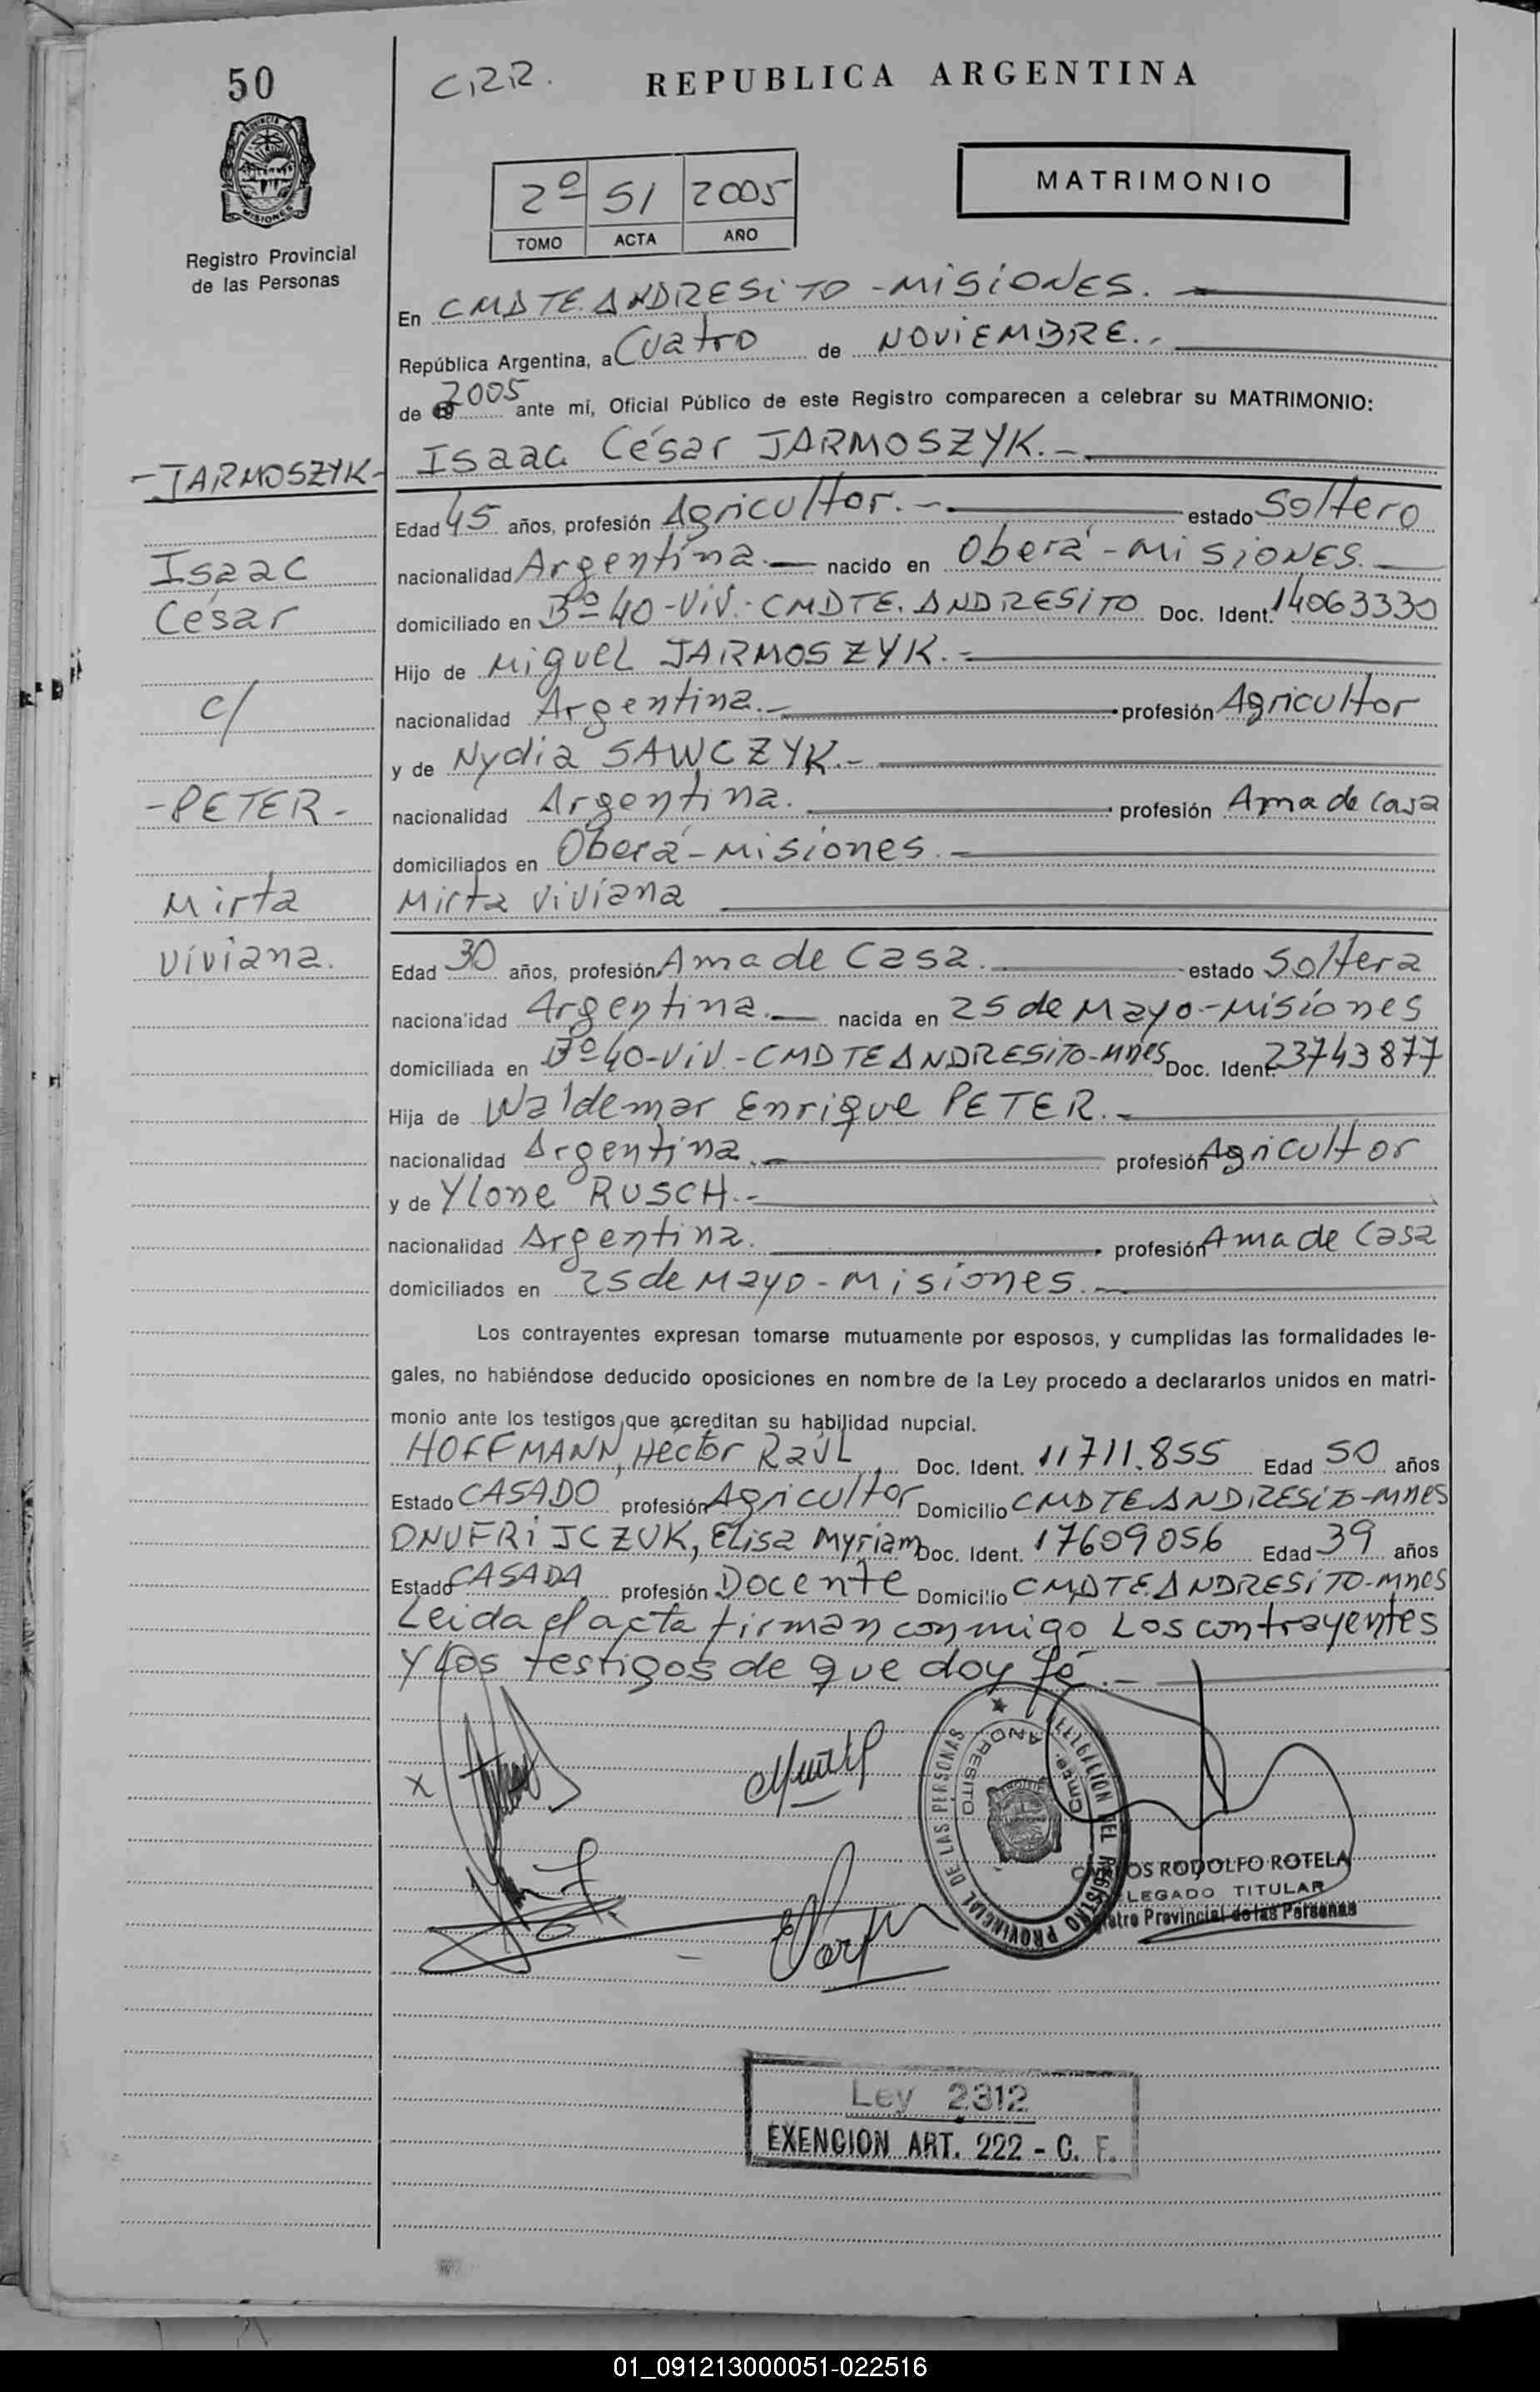 50
C.R.R.
REPUBLICA ARGENTINA
PROVINCIA DE
MISIONES
Registro Provincial
de las Personas
2º 51 2005
TOMO ACTA AÑO
MATRIMONIO
En CMDTE. ANDRESITO - MISIONES.
República Argentina, a Cuatro de NOVIEMBRE.
de 2005 ante mí, Oficial Público de este Registro comparecen a celebrar su MATRIMONIO:
- JARMOSZYK -
Isaac César JARMOSZYK.-
Edad 45 años, profesión Agricultor.- estado Soltero
Isaac
nacionalidad Argentina.- nacido en Oberá - MISIONES.
César
domiciliado en Bº 40-Viv.- CMDTE. ANDRESITO Doc. Ident. 14063330
Hijo de Miguel JARMOSZYK.-
c/
nacionalidad Argentina.- profesión Agricultor
y de Nydia SAWCZYK.-
- PETER -
nacionalidad Argentina. profesión Ama de Casa
domiciliados en Oberá - Misiones.-
Mirta
Mirta Viviana
Viviana.
Edad 30 años, profesión Ama de Casa. estado Soltera
nacionalidad Argentina.- nacida en 25 de Mayo - Misiones
domiciliada en Bº 40-Viv.- CMDTE ANDRESITO-Mnes Doc. Ident. 23743877
Hija de Waldemar Enrique PETER.-
nacionalidad Argentina.- profesión Agricultor
y de Ylone RUSCH.-
nacionalidad Argentina. profesión Ama de Casa
domiciliados en 25 de Mayo - Misiones.-
Los contrayentes expresan tomarse mutuamente por esposos, y cumplidas las formalidades le-
gales, no habiéndose deducido oposiciones en nombre de la Ley procedo a declararlos unidos en matri-
monio ante los testigos que acreditan su habilidad nupcial.
HOFFMANN, Héctor Raúl Doc. Ident. 11711.855 Edad 50 años
Estado CASADO profesión Agricultor Domicilio CMDTE ANDRESITO-Mnes
ONUFRIJCZUK, Elisa Myriam Doc. Ident. 17609056 Edad 39 años
Estado CASADA profesión Docente Domicilio CMDTE. ANDRESITO-Mnes
Leida el acta firman conmigo Los contrayentes
y Los testigos de que doy fé.-
x
DELEGACION DEL REGISTRO PROVINCIAL DE LAS PERSONAS
Cmte. ANDRESITO
OS RODOLFO ROTELA
LEGADO TITULAR
Registro Provincial de las Personas
Ley 2312
EXENCION ART. 222 - C. F.
01_091213000051-022516